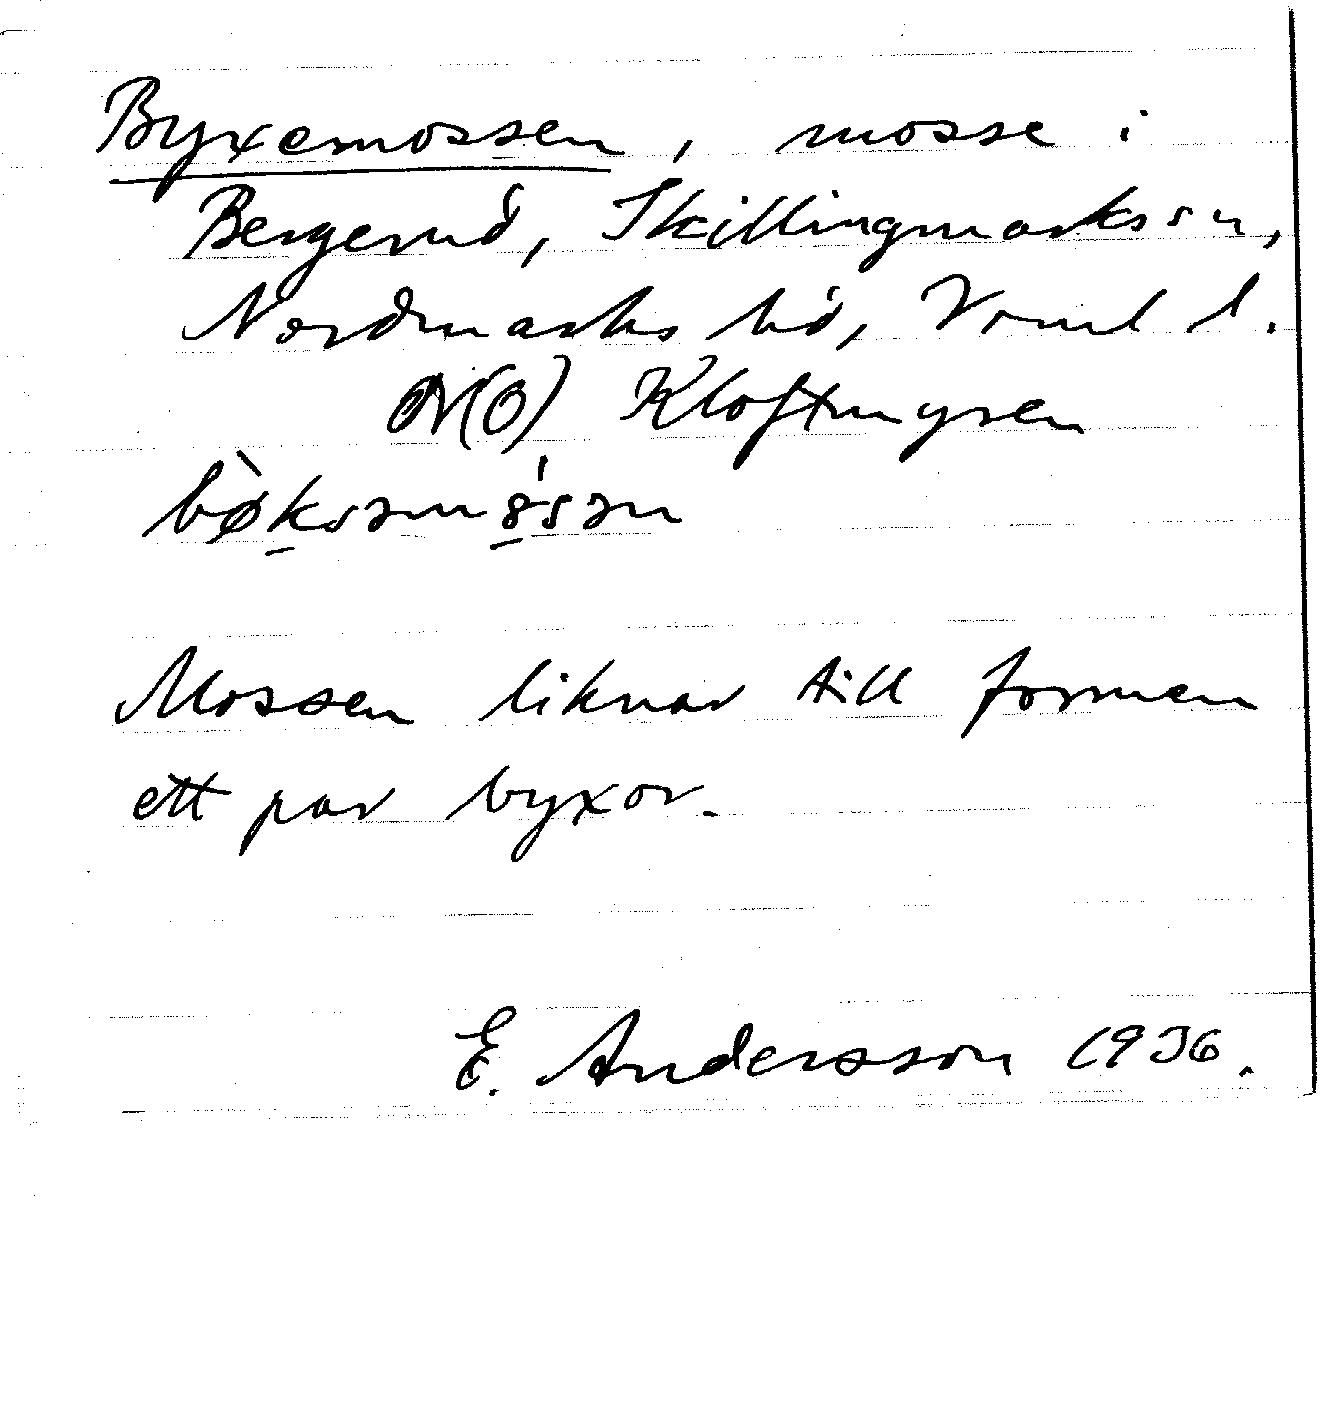 Byxemossen, mosse i
Bergerud, Skillingmarks sn,
Nordmarks hd, Vrml l.
N(O) Kloftmyren
bø̀ksəmósən
Mossen liknar till formen
ett par byxor.
E. Andersson 1936.